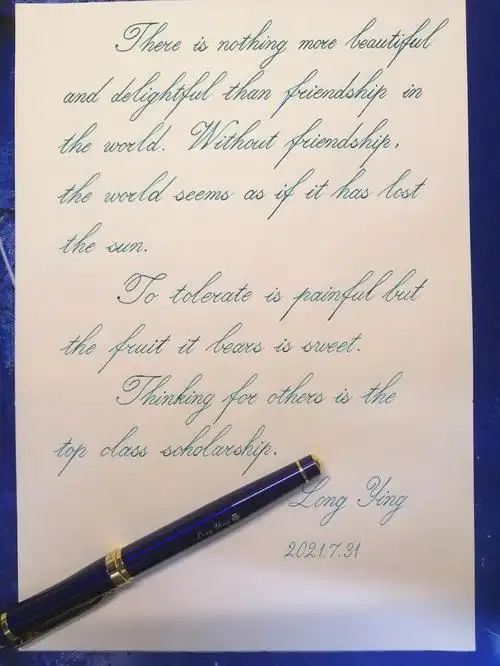 There is nothing more beautiful
and delightful than friendship in
the world. Without friendship,
the world seems as if it has lost
the sun.
To tolerate is painful but
the fruit it bears is sweet.
Thinking for others is the
top class scholarship.
Long Ying
2021.7.31